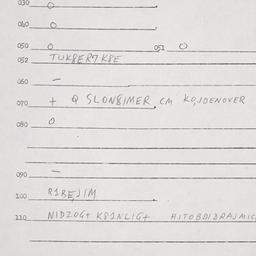 030 O
040 O
050 O 051 O
052 TUKSERTKSE
060 –
070 + Q SLONSIMER CM KOJDENOVER
080 O
090 –
100 R1BEJIM
110 NIDZOG+ KSINLIG+ HITOBDIDRAJMIC